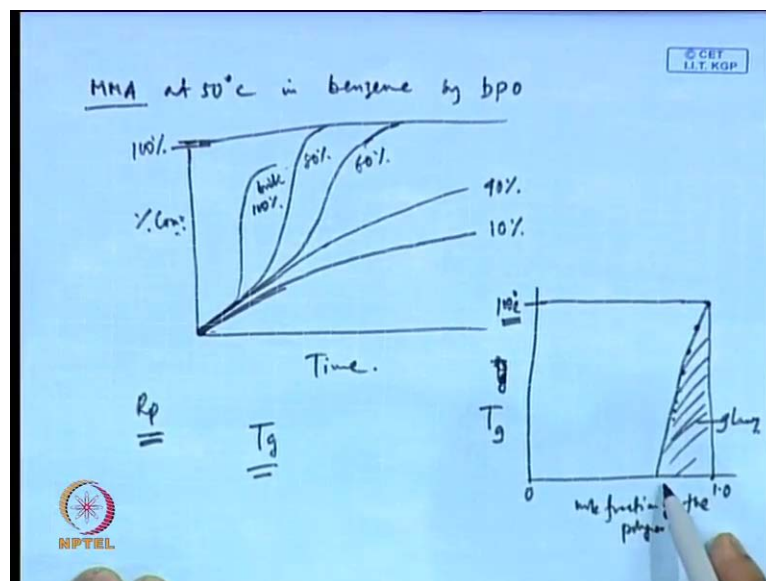 © CET
I.I.T. KGP
MMA at 50°C in benzene by bpo
100%
bulk
100%
80%
60%
% Con:
40%
10%
Time.
Rp
Tg
110°C
Tg
glassy
0
1.0
mole fraction the
NPTEL